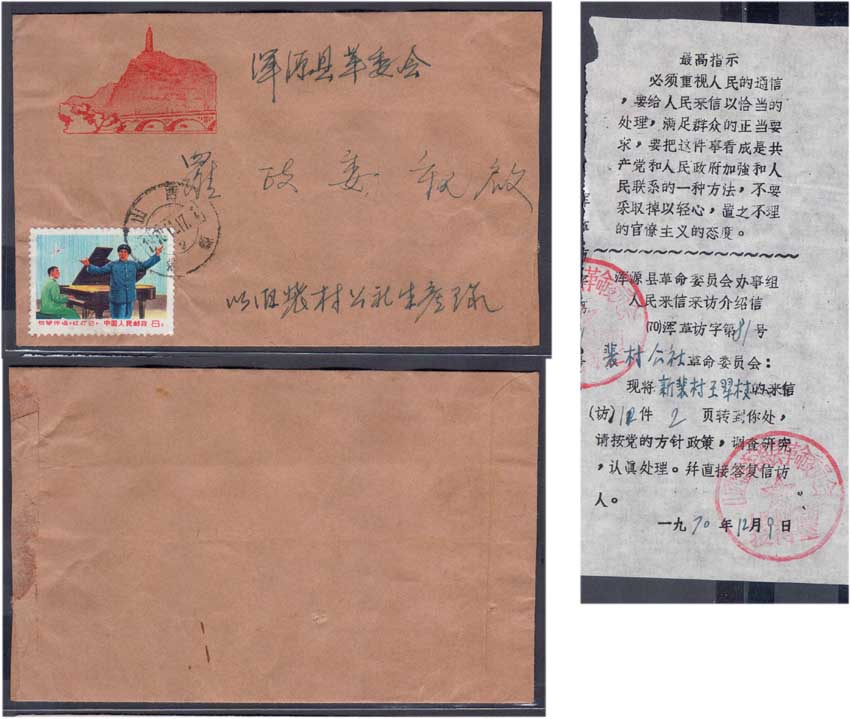 浑源县革委会
罗政委亲启
山西
钢琴伴唱《红灯记》 中国人民邮政 8分
裴村公社
最高指示
必须重视人民的通信
，要给人民来信以恰当的
处理，满足群众的正当要
求，要把这件事看成是共
产党和人民政府加強和人
民联系的一种方法，不要
采取掉以轻心，置之不理
的官僚主义的态度。
浑源县革命委员会办事组
人民来信来访介绍信
(70)浑革访字第81号
裴村公社革命委员会：
现将新裴村王翠枝的来信
(访)12件 2 页转到你处，
请按党的方针政策，调查研究
，认眞处理。幷直接答复信访
人。
一九70年12月9日